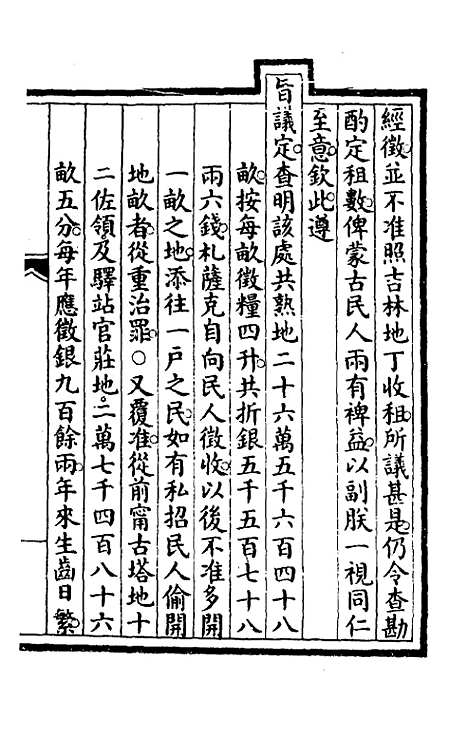 經徵並不准照吉林地丁收租所議甚是仍令查勘
酌定租數俾蒙古民人兩有裨益以副朕一視同仁
至意欽此遵
旨議定查明該處共熟地二十六萬五千六百四十八
畝按每畝徵糧四升共折銀五千五百七十八
兩六錢札薩克自向民人徵收以後不准多開
一畝之地添往一戶之民如有私招民人偷開
地畝者從重治罪○又覆准從前甯古塔地十
二佐領及驛站官莊地二萬七千四百八十六
畝五分每年應徵銀九百餘兩年來生齒日繁